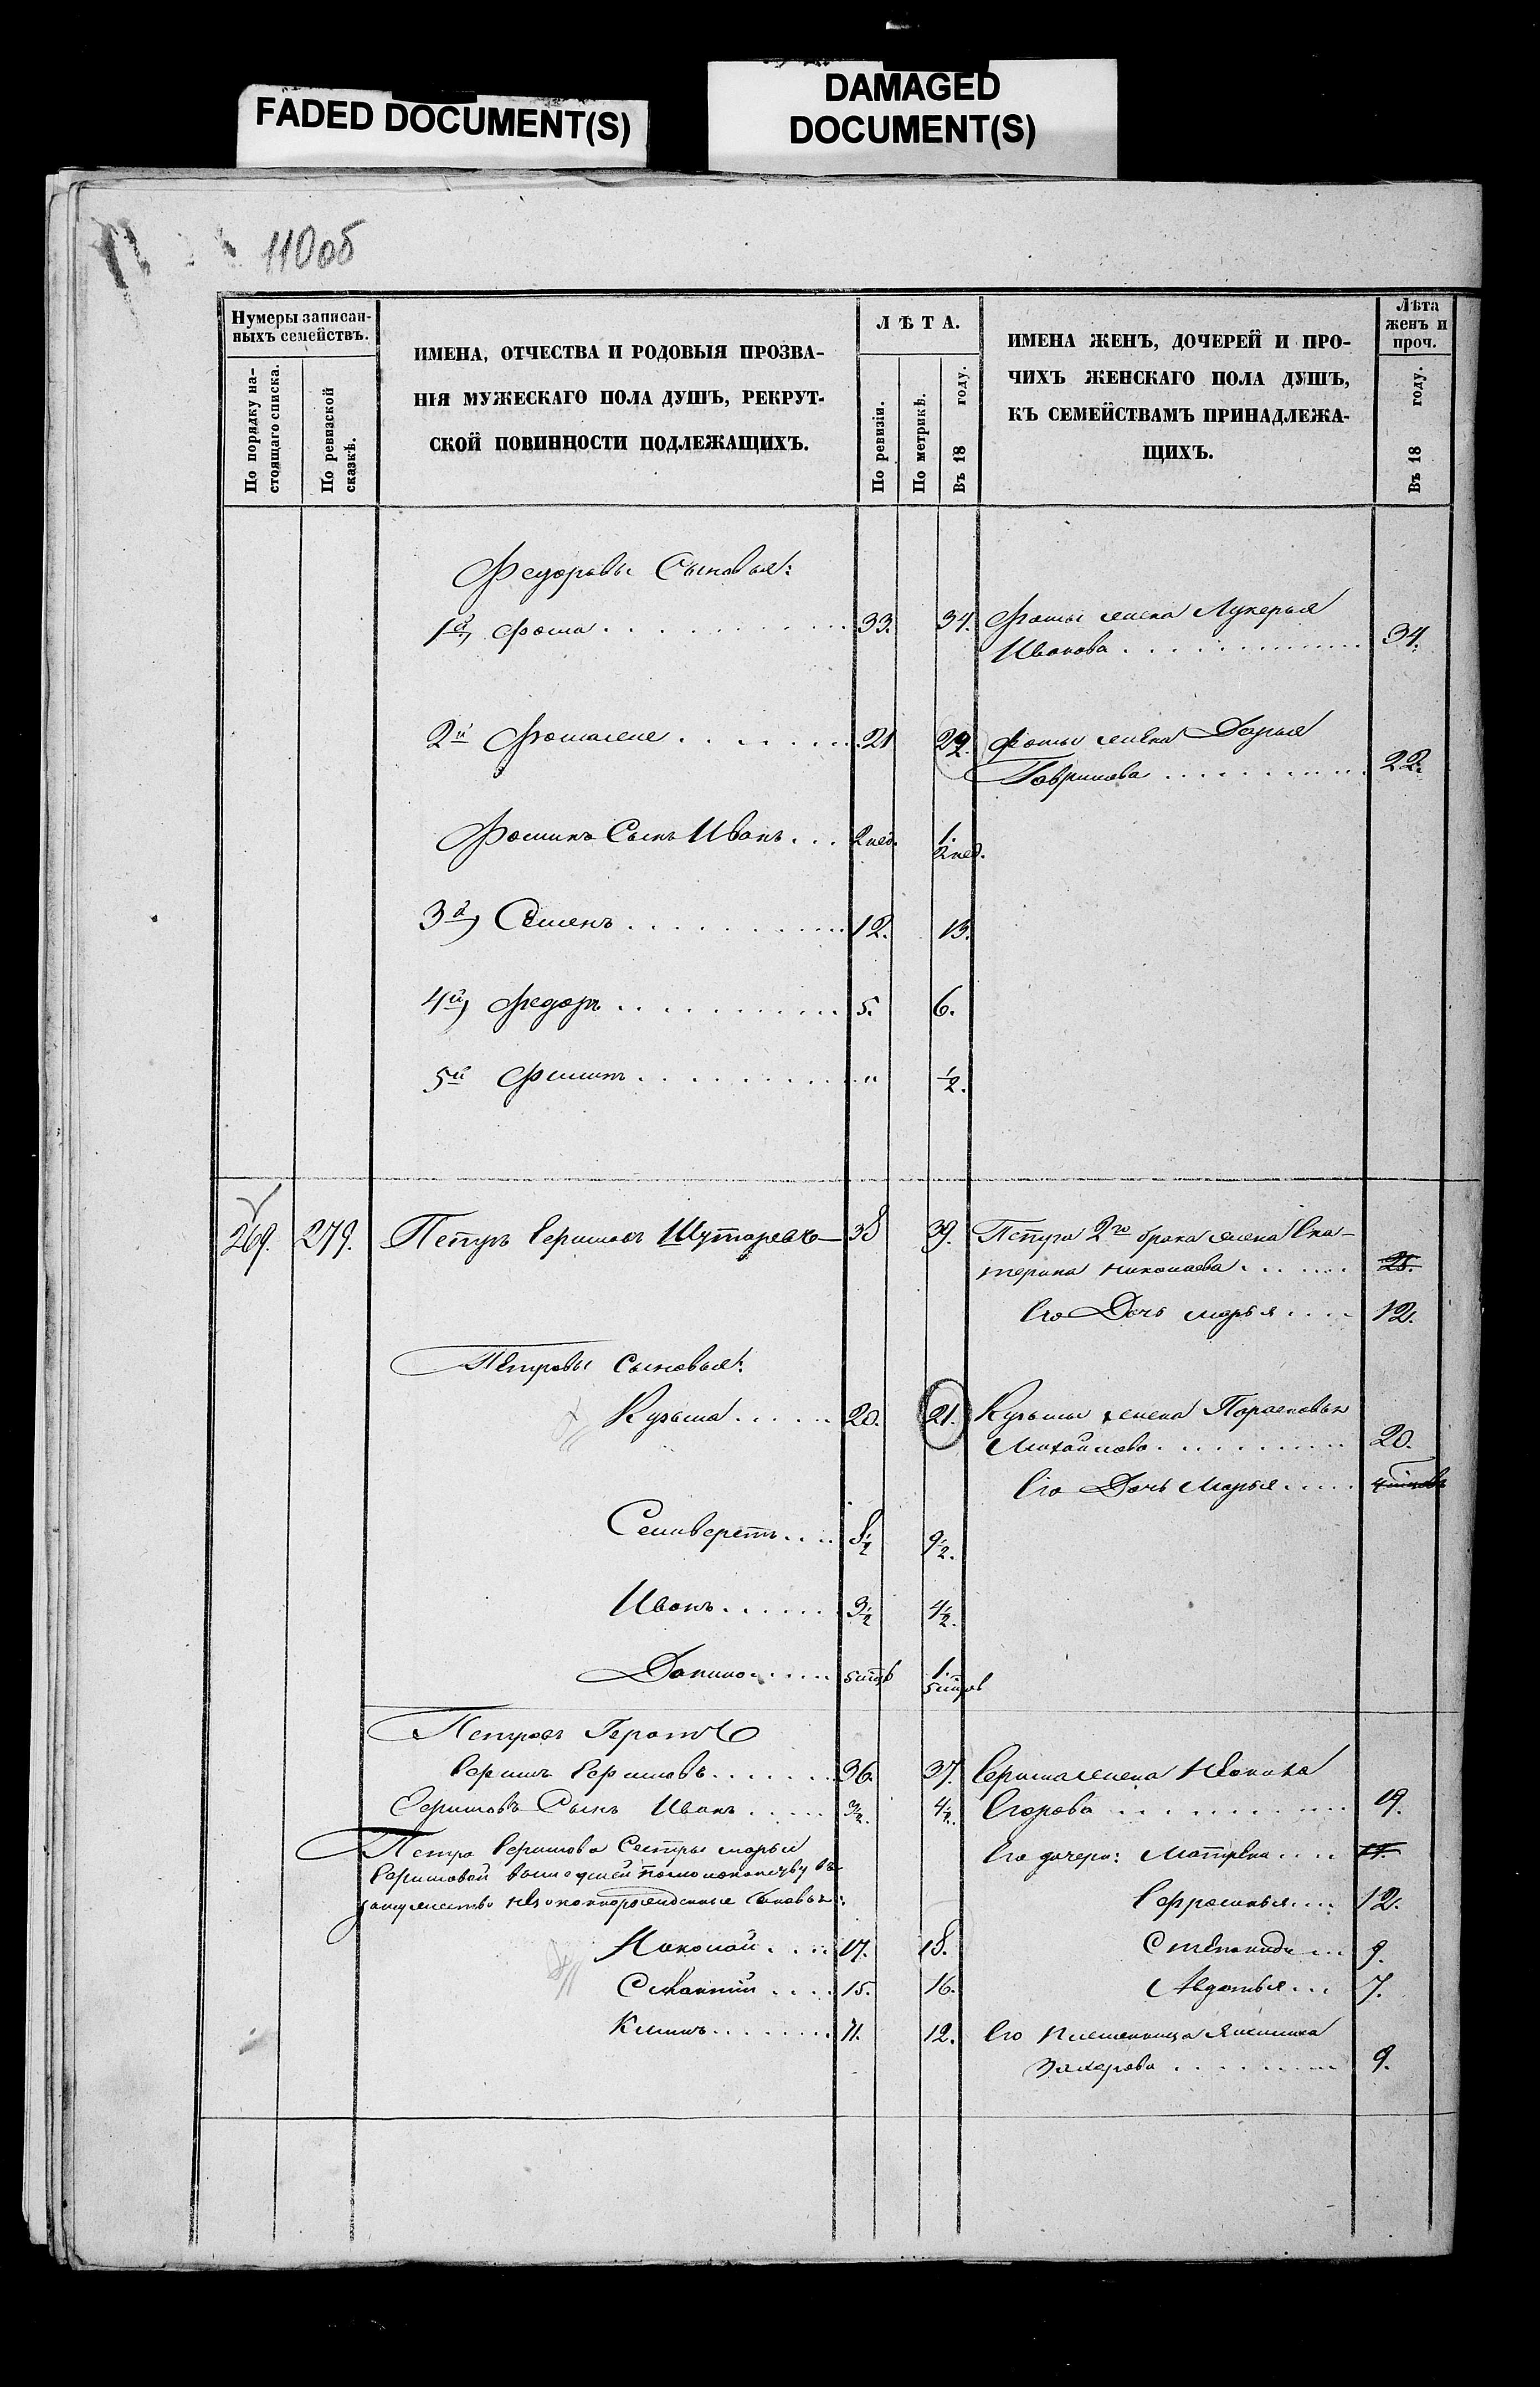 FADED DOCUMENT(S)
DAMAGED
DOCUMENT(S)
110об
Нумеры записан-
ныхъ семействъ.
По порядку на-
стоящаго списка.
По ревизской
сказкѣ.
ИМЕНА, ОТЧЕСТВА И РОДОВЫЯ ПРОЗВА-
НІЯ МУЖЕСКАГО ПОЛА ДУШЪ, РЕКРУТ-
СКОЙ ПОВИННОСТИ ПОДЛЕЖАЩИХЪ.
ЛѢТА.
По ревизіи.
По метрикѣ.
Въ 18 году.
ИМЕНА ЖЕНЪ, ДОЧЕРЕЙ И ПРО-
ЧИХЪ ЖЕНСКАГО ПОЛА ДУШЪ,
КЪ СЕМЕЙСТВАМЪ ПРИНАДЛЕЖА-
ЩИХЪ.
Лѣта
женъ и
проч.
Въ 18 году.
Федоровы Сыновья:
1й, Фома . . . 33. 34. Фомы жена Лукерья
Иванова . . . 34.
2й Фомаже . . . 21 22. Фомы жена Дарья
Гаврилова . . . 22.
Фоминъ Сынъ Иванъ . . . 2 нед. 1.
2 нед.
3й, Семенъ . . . 12. 13.
4й, Федоръ . . . 5. 6.
5й Филипъ . . . " ½.
269. 279. Петръ Ермиловъ Шутаревъ 38 39. Петра 2го брака жена Ека-
терина Николаева . . . 25.
Его Дочь Марья . . . 12.
Петровы Сыновья:
Кузьма . . . 20. 21. Кузьмы жена Парасковья
Михайлова . . . 20.
Его Дочь Марья . . .
Селиверстъ . . . 8½ 9½.
Иванъ . . . 3½ 4½.
Данило . . .
1.
Петровъ Братъ
Ермилъ Ермиловъ . . . 36. 37. Ермила жена
Ермиловъ Сынъ Иванъ . . . 3½. 4½. Егорова . . . 19.
Петра Ермилова Сестры Марьи
Ермиловой вышедшей въ
замужество незаконнорожденные Сыновья:
Его дочери: Матрена . . .
Ефросинья . . . 12.
Николай . . . 17. 18. Степанида . . . 9.
15. 16. Авдотья . . . 7.
Климъ . . . 11. 12. Его Племянница
Захарова . . . 9.